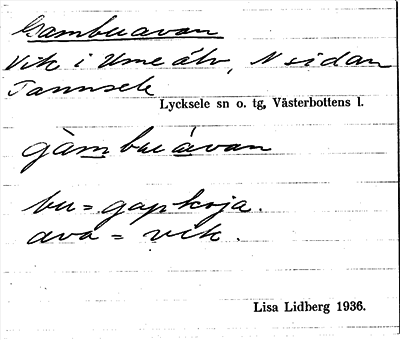 Gambuavan
Vik i Ume älv, N sidan
Tannsele
Lycksele sn o. tg, Västerbottens l.
gàmbuávan
bu = gapkoja.
ava = vik.
Lisa Lidberg 1936.